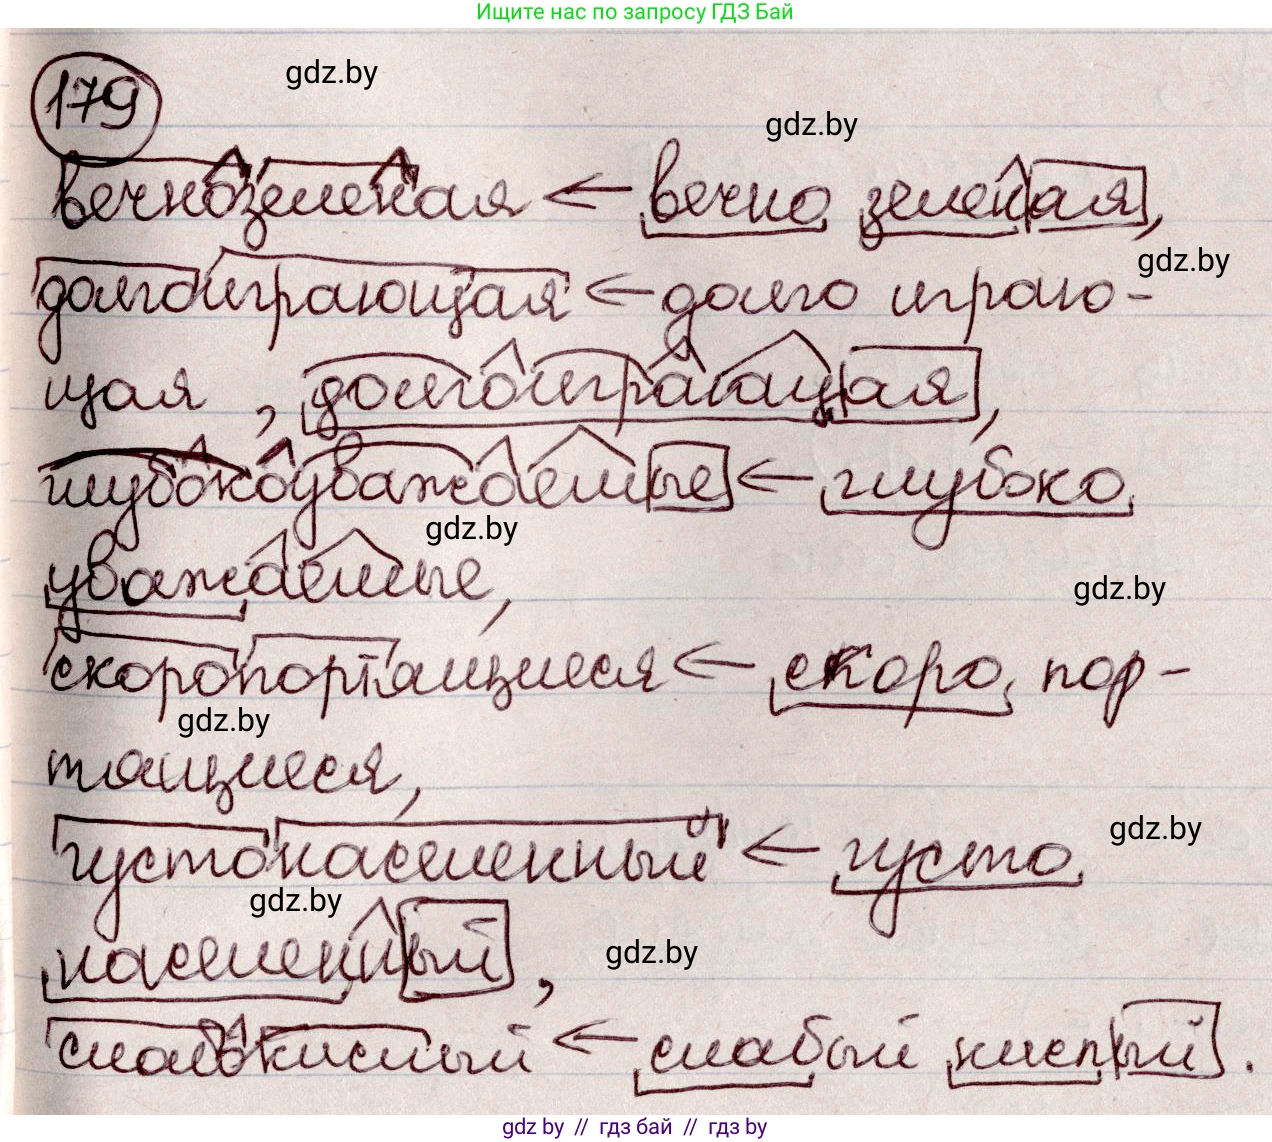 Ищите нас по запросу ГДЗ Бай
179
gdz.by
gdz.by
вечнозеленая ← вечно зеленая,
gdz.by
долгоиграющая ← долго играю-
щая, долгоиграющая,
глубокоуважаемые ← глубоко
gdz.by
уважаемые,
gdz.by
скоропортящиеся ← скоро пор-
gdz.by
тящиеся,
gdz.by
густонаселенный ← густо
gdz.by
населенный,
gdz.by
слабокислый ← слабый кислый.
gdz.by // гдз бай // гдз by